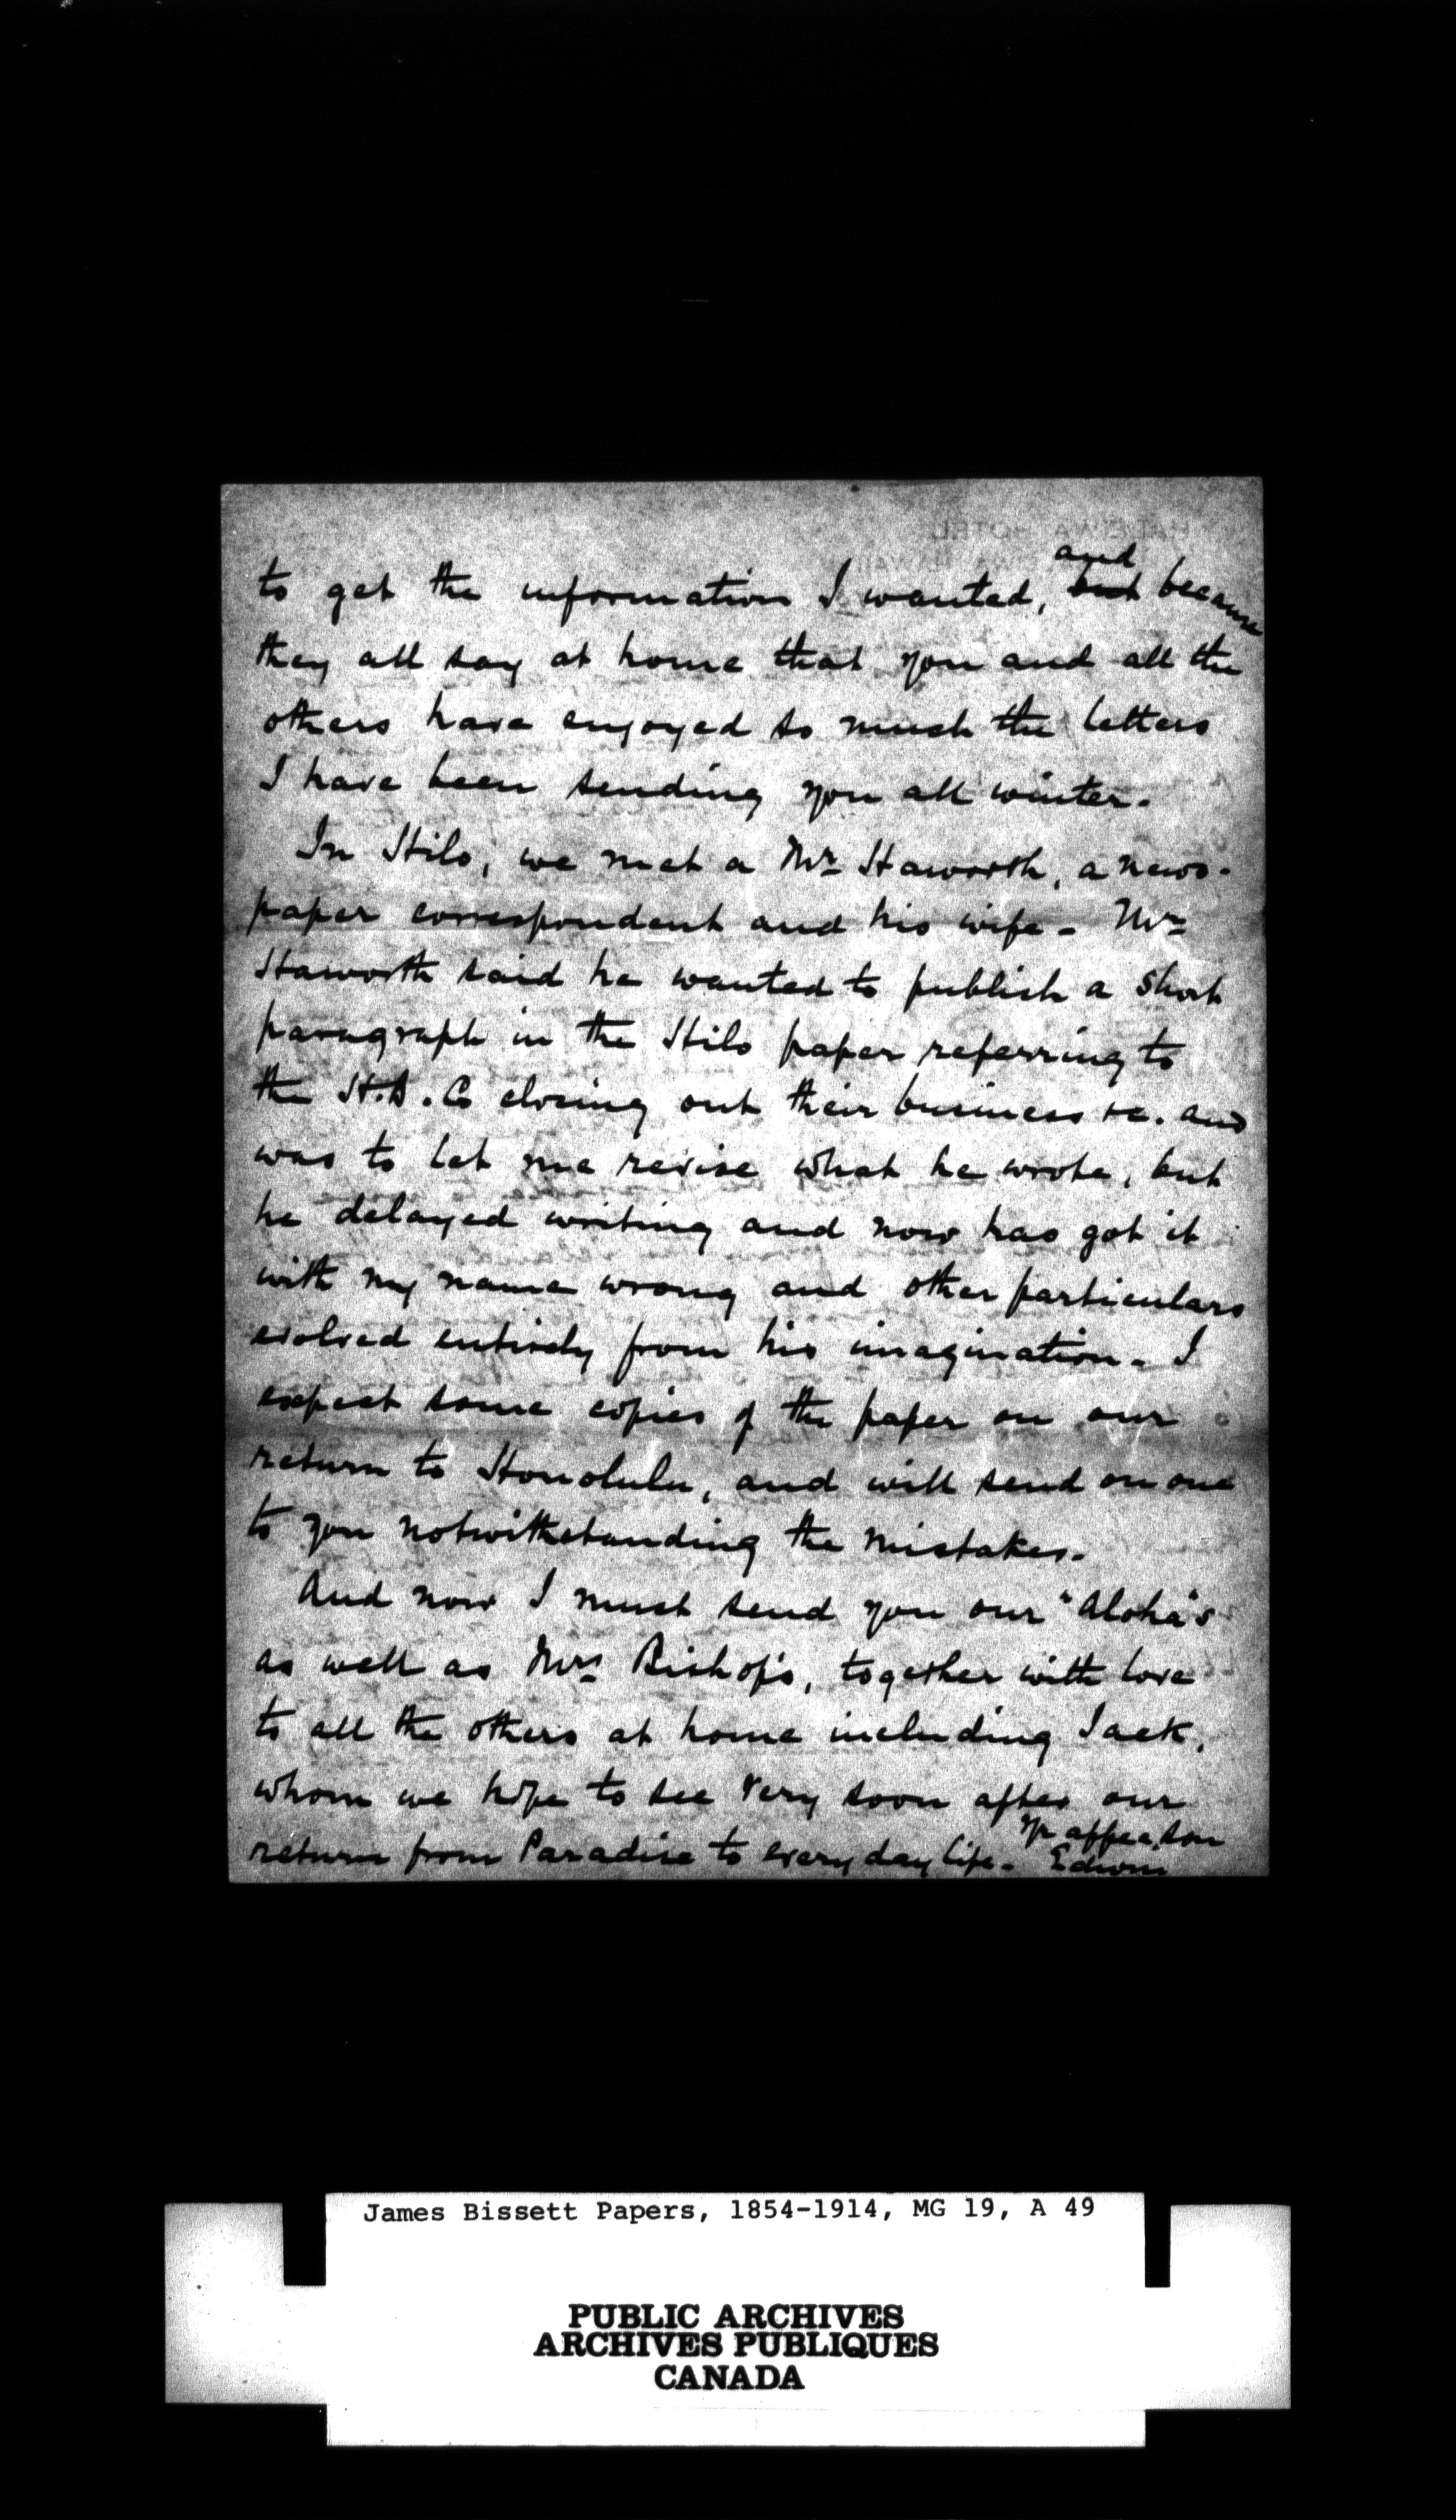 to get the information I wanted, and but because
they all say at home that you and all the
others have enjoyed so much the letters
I have been sending you all winter.
In Hilo, we met a Mr Haworth, a news-
paper correspondent and his wife - Mr
Haworth said he wanted to publish a short
paragraph in the Hilo paper referring to
the H.B. Co closing out their business &c. and
was to let me revise what he wrote, but
he delayed writing and now has got it
with my name wrong and other particulars
evolved entirely from his imagination - I
expect some copies of the paper on our
return to Honolulu, and will send on one
to you notwithstanding the mistakes.
And now I must send you our "Aloha"s
as well as Mrs Bishop's, together with love
to all the others at home including Jack,
whom we hope to see very soon after our
return from Paradise to every day life - Yr affec. son
Edwin
James Bissett Papers, 1854-1914, MG 19, A 49
PUBLIC ARCHIVES
ARCHIVES PUBLIQUES
CANADA